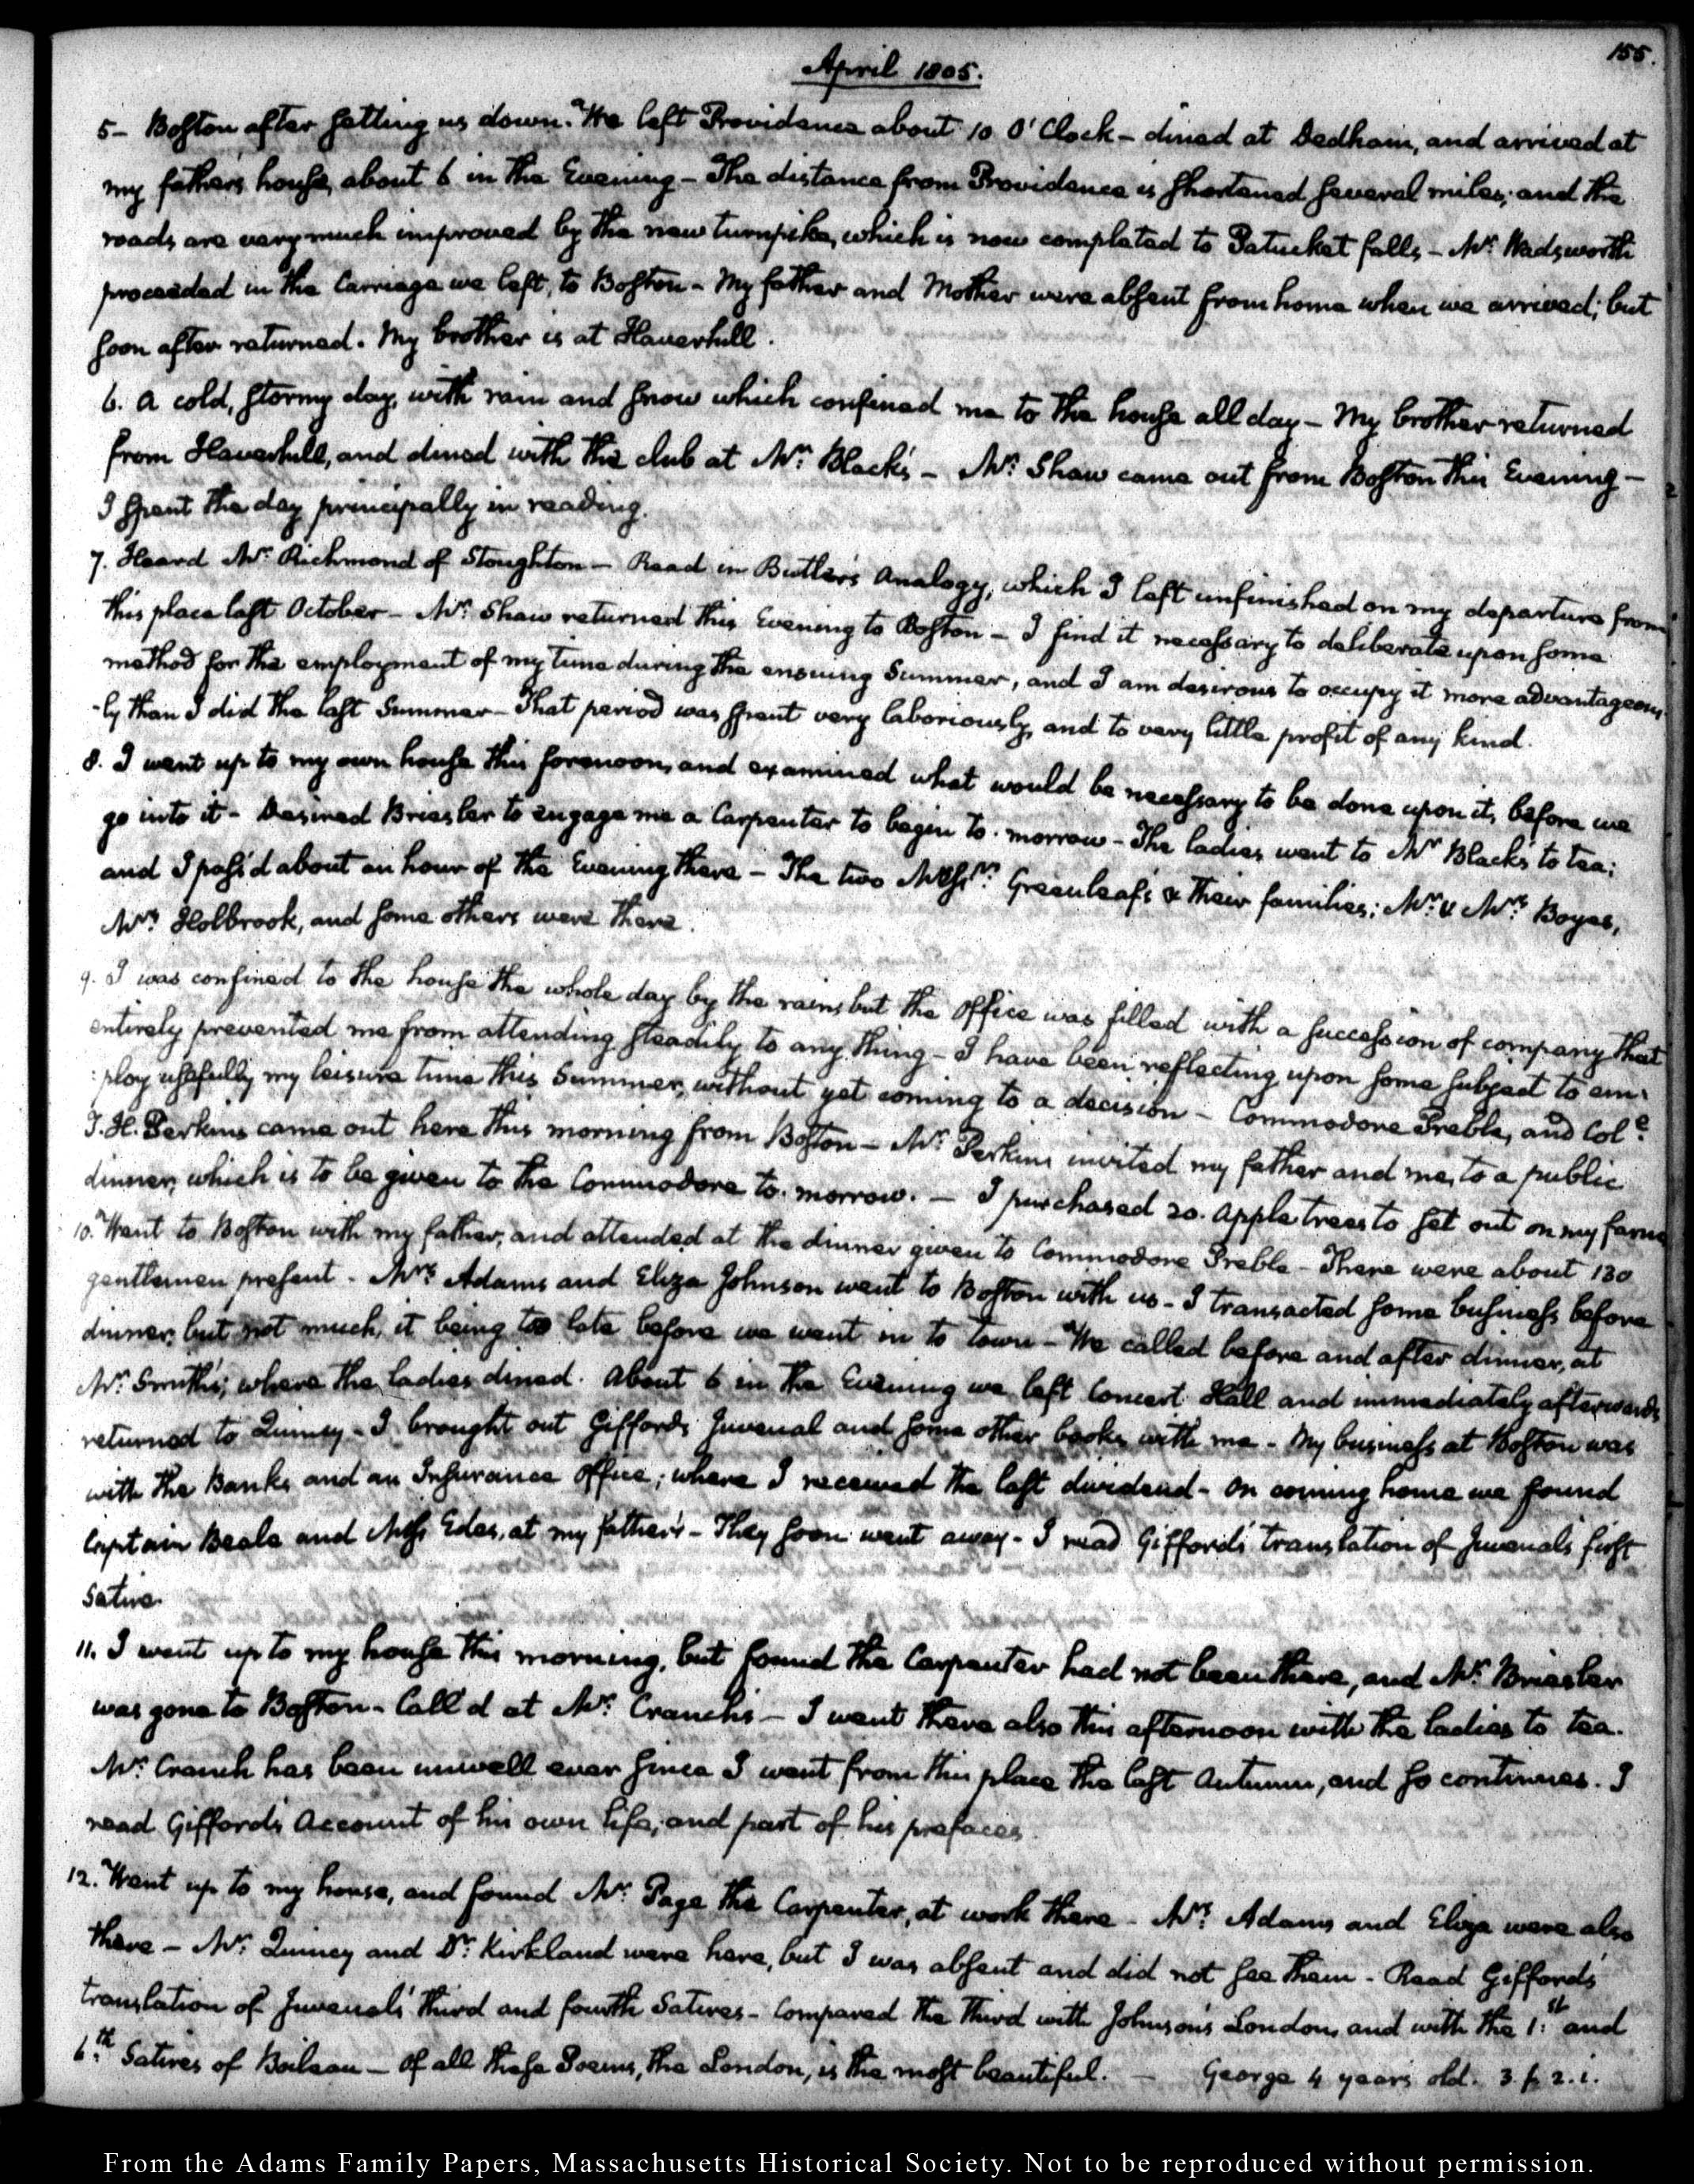 155.
April 1805.
5- Boston after setting us down. We left Providence about 10 O'Clock - dined at Dedham, and arrived at
my father's house, about 6 in the Evening - The distance from Providence is shortened several miles; and the
roads are very much improved by the new turnpike, which is now completed to Patucket falls - Mr. Wadsworth
proceeded in the Carriage we left, to Boston - My father and Mother were absent from home when we arrived; but
soon after returned. My brother is at Haverhill.
6. A cold, stormy day, with rain and snow which confined me to the house all day - My brother returned
from Haverhill, and dined with the club at Mr. Black's - Mr. Shaw came out from Boston this Evening -
I spent the day principally in reading.
7. Heard Mr. Richmond of Stoughton - Read in Butler's Analogy, which I left unfinished on my departure from
this place last October - Mr. Shaw returned this Evening to Boston - I find it necessary to deliberate upon some
method for the employment of my time during the ensuing Summer, and I am desirous to occupy it more advantageous-
-ly than I did the last Summer - That period was spent very laboriously, and to very little profit of any kind.
8. I went up to my own house this forenoon, and examined what would be necessary to be done upon it, before we
go into it - Desired Briesler to engage me a Carpenter to begin to-morrow - The ladies went to Mr. Black's to tea;
and I pass'd about an hour of the Evening there - The two Messrs. Greenleaf's & their families; Mr. & Mrs. Boyes,
Mrs. Holbrook, and some others were there.
9. I was confined to the house the whole day by the rain; but the office was filled with a succession of company that
entirely prevented me from attending steadily to any thing - I have been reflecting upon some subject to em-
:ploy usefully my leisure time this Summer, without yet coming to a decision - Commodore Preble, and Coll.
T. H. Perkins came out here this morning from Boston - Mr. Perkins invited my father and me, to a public
dinner, which is to be given to the Commodore to-morrow. - I purchased 20. apple trees to set out on my farm
10. Went to Boston with my father, and attended at the dinner given to Commodore Preble - There were about 130
gentlemen present - Mrs. Adams and Eliza Johnson went to Boston with us - I transacted some business before
dinner; but not much, it being too late before we went in to town - We called before and after dinner, at
Mr. Smith's; where the ladies dined. About 6 in the Evening we left Concert Hall and immediately afterwards
returned to Quincy - I brought out Giffords Juvenal and some other books with me - My business at Boston was
with the Banks and an Insurance office; where I received the last dividend - On coming home we found
Captain Beale and Miss Edes, at my father's - They soon went away - I read Gifford's translation of Juvenal's first
Satire.
11. I went up to my house this morning, but found the Carpenter had not been there, and Mr. Briesler
was gone to Boston - Call'd at Mr. Cranch's - I went there also this afternoon with the ladies to tea.
Mr. Cranch has been unwell ever since I went from this place the last Autumn, and so continues. I
read Gifford's Account of his own life, and part of his prefaces.
12. Went up to my house, and found Mr. Page the Carpenter, at work there - Mrs. Adams and Eliza were also
there - Mr. Quincy and Dr. Kirkland were here, but I was absent and did not see them - Read Gifford's
translation of Juvenal's third and fourth Satires - Compared the third with Johnson's London, and with the 1st. and
6th. Satires of Boileau - Of all these Poems, the London, is the most beautiful. - George 4 years old. 3. f. 2. i.
From the Adams Family Papers, Massachusetts Historical Society. Not to be reproduced without permission.